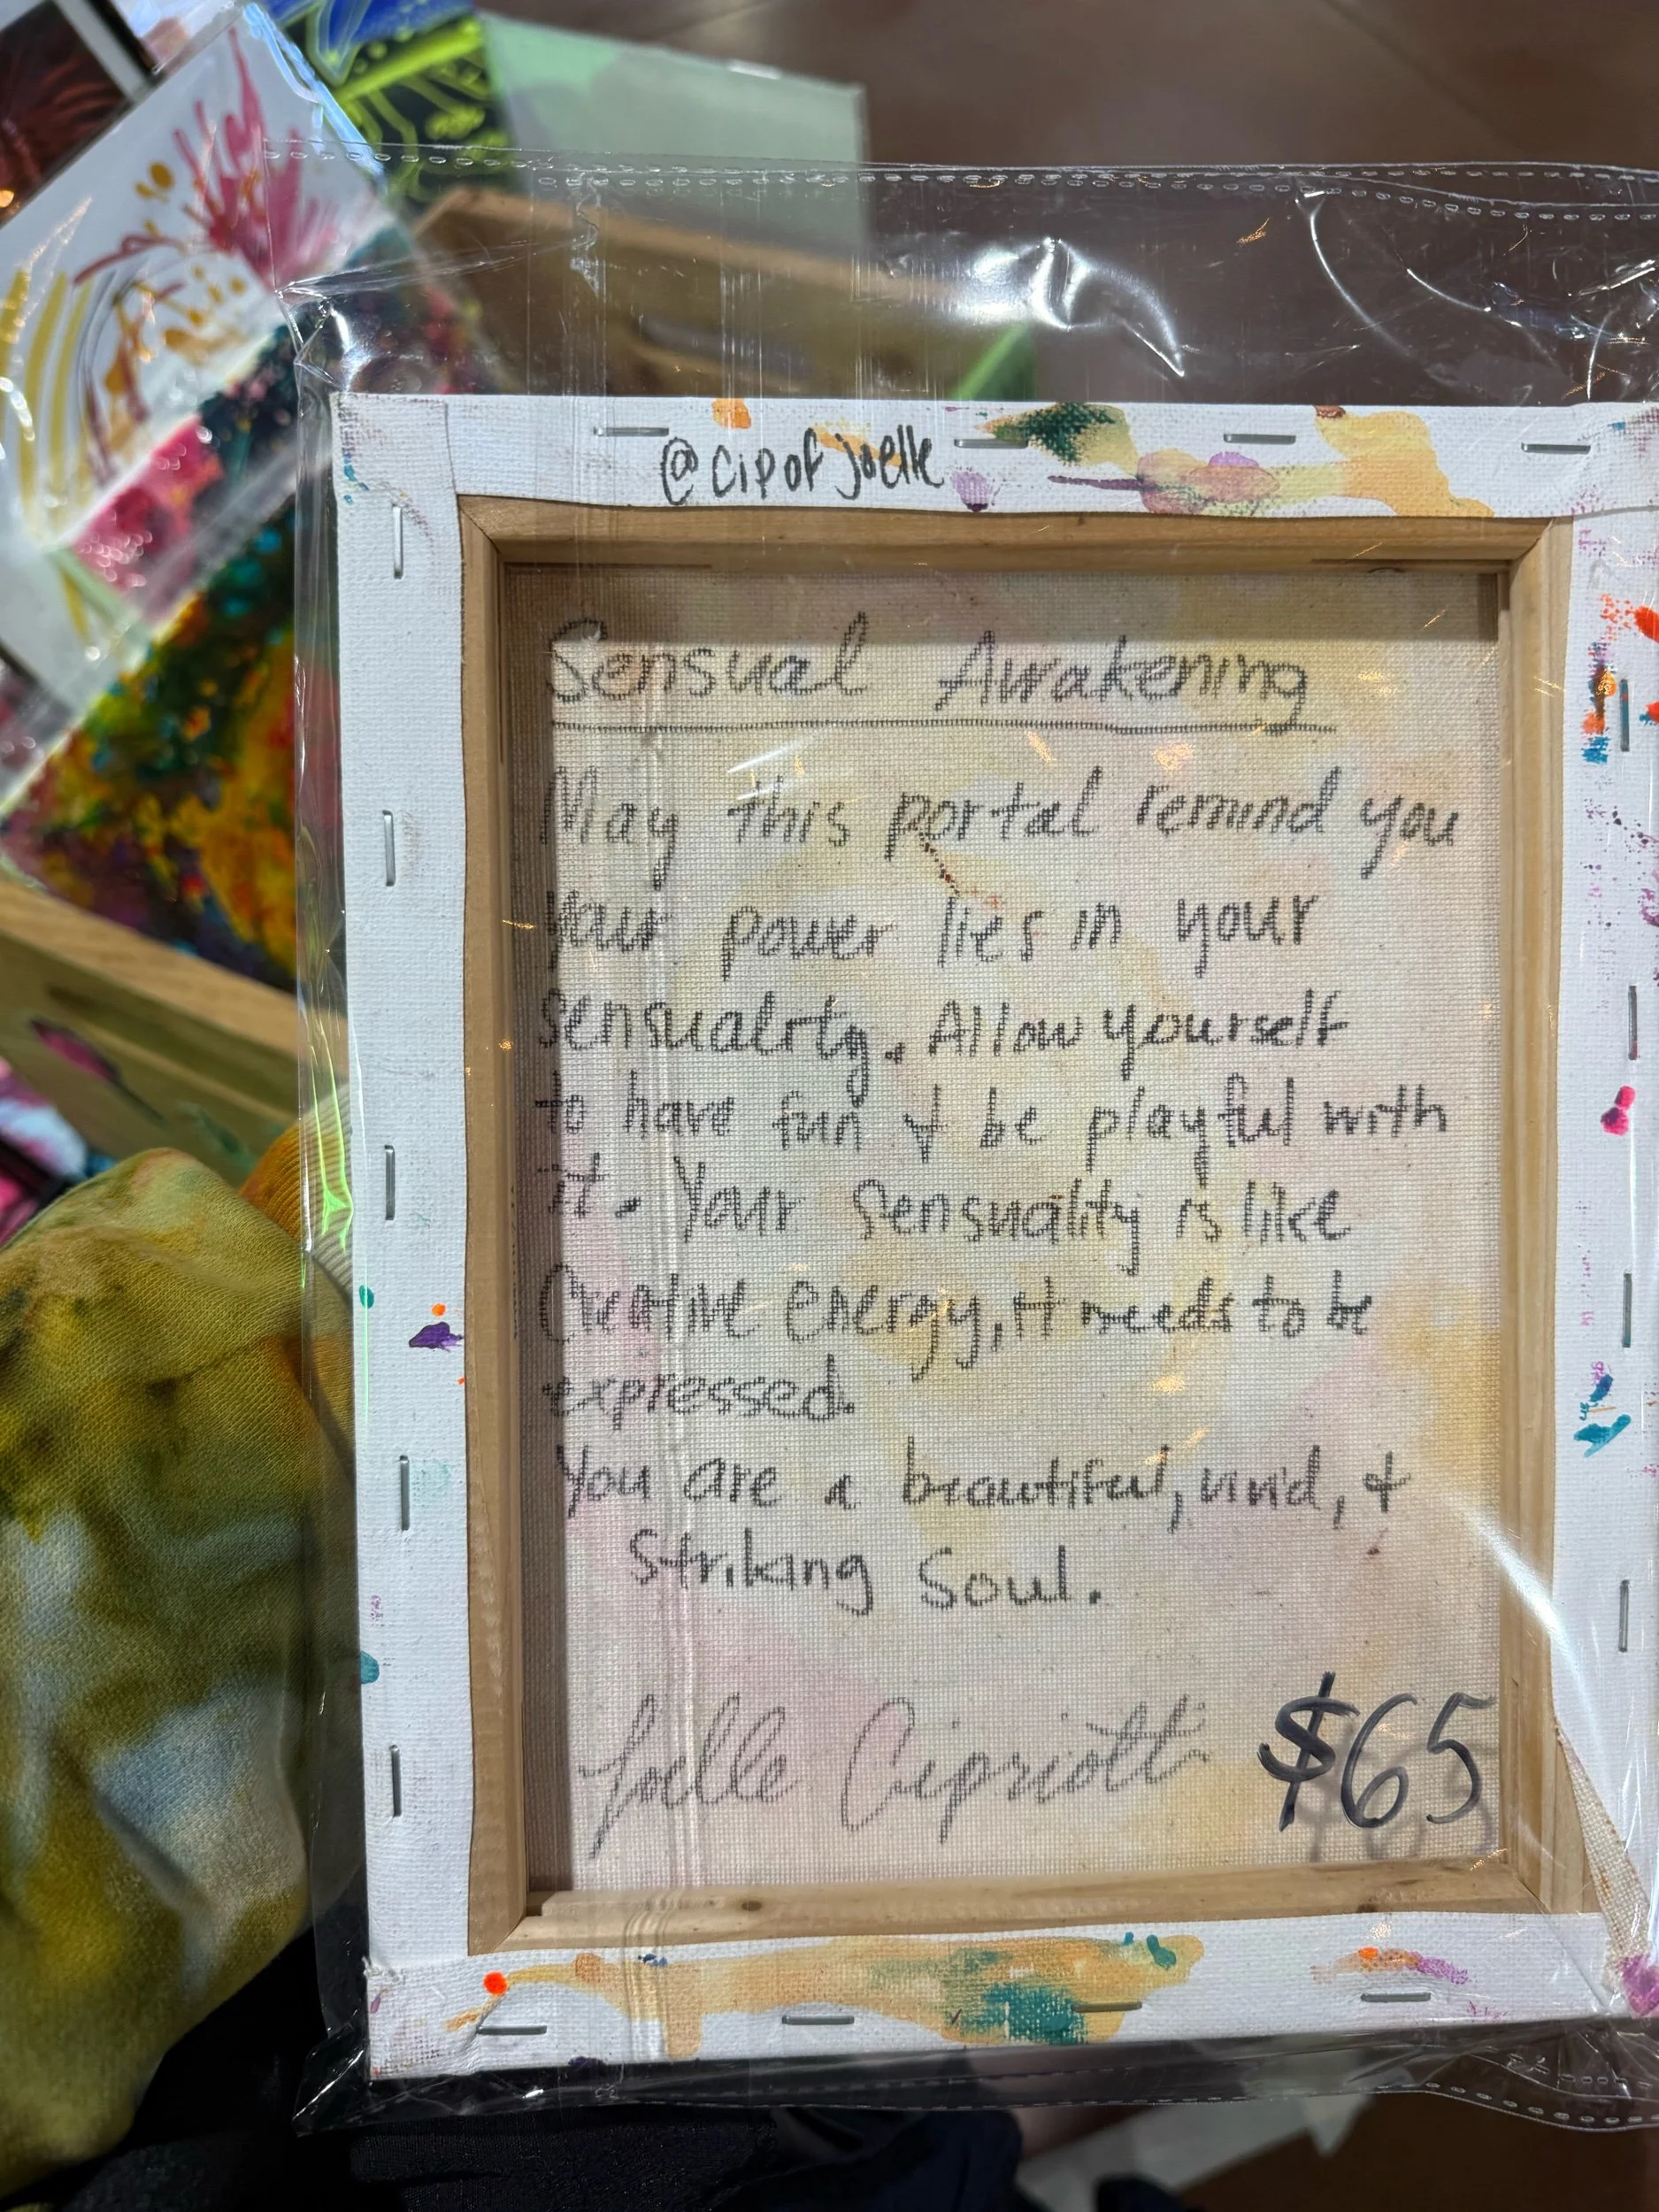 @cipofjoelle
Sensual Awakening
May this portal remind you
your power lies in your
sensuality. Allow yourself
to have fun & be playful with
it. Your sensuality is like
Creative energy, it needs to be
expressed.
You are a beautiful, vivid, &
striking soul.
Joelle Cipriotti $65